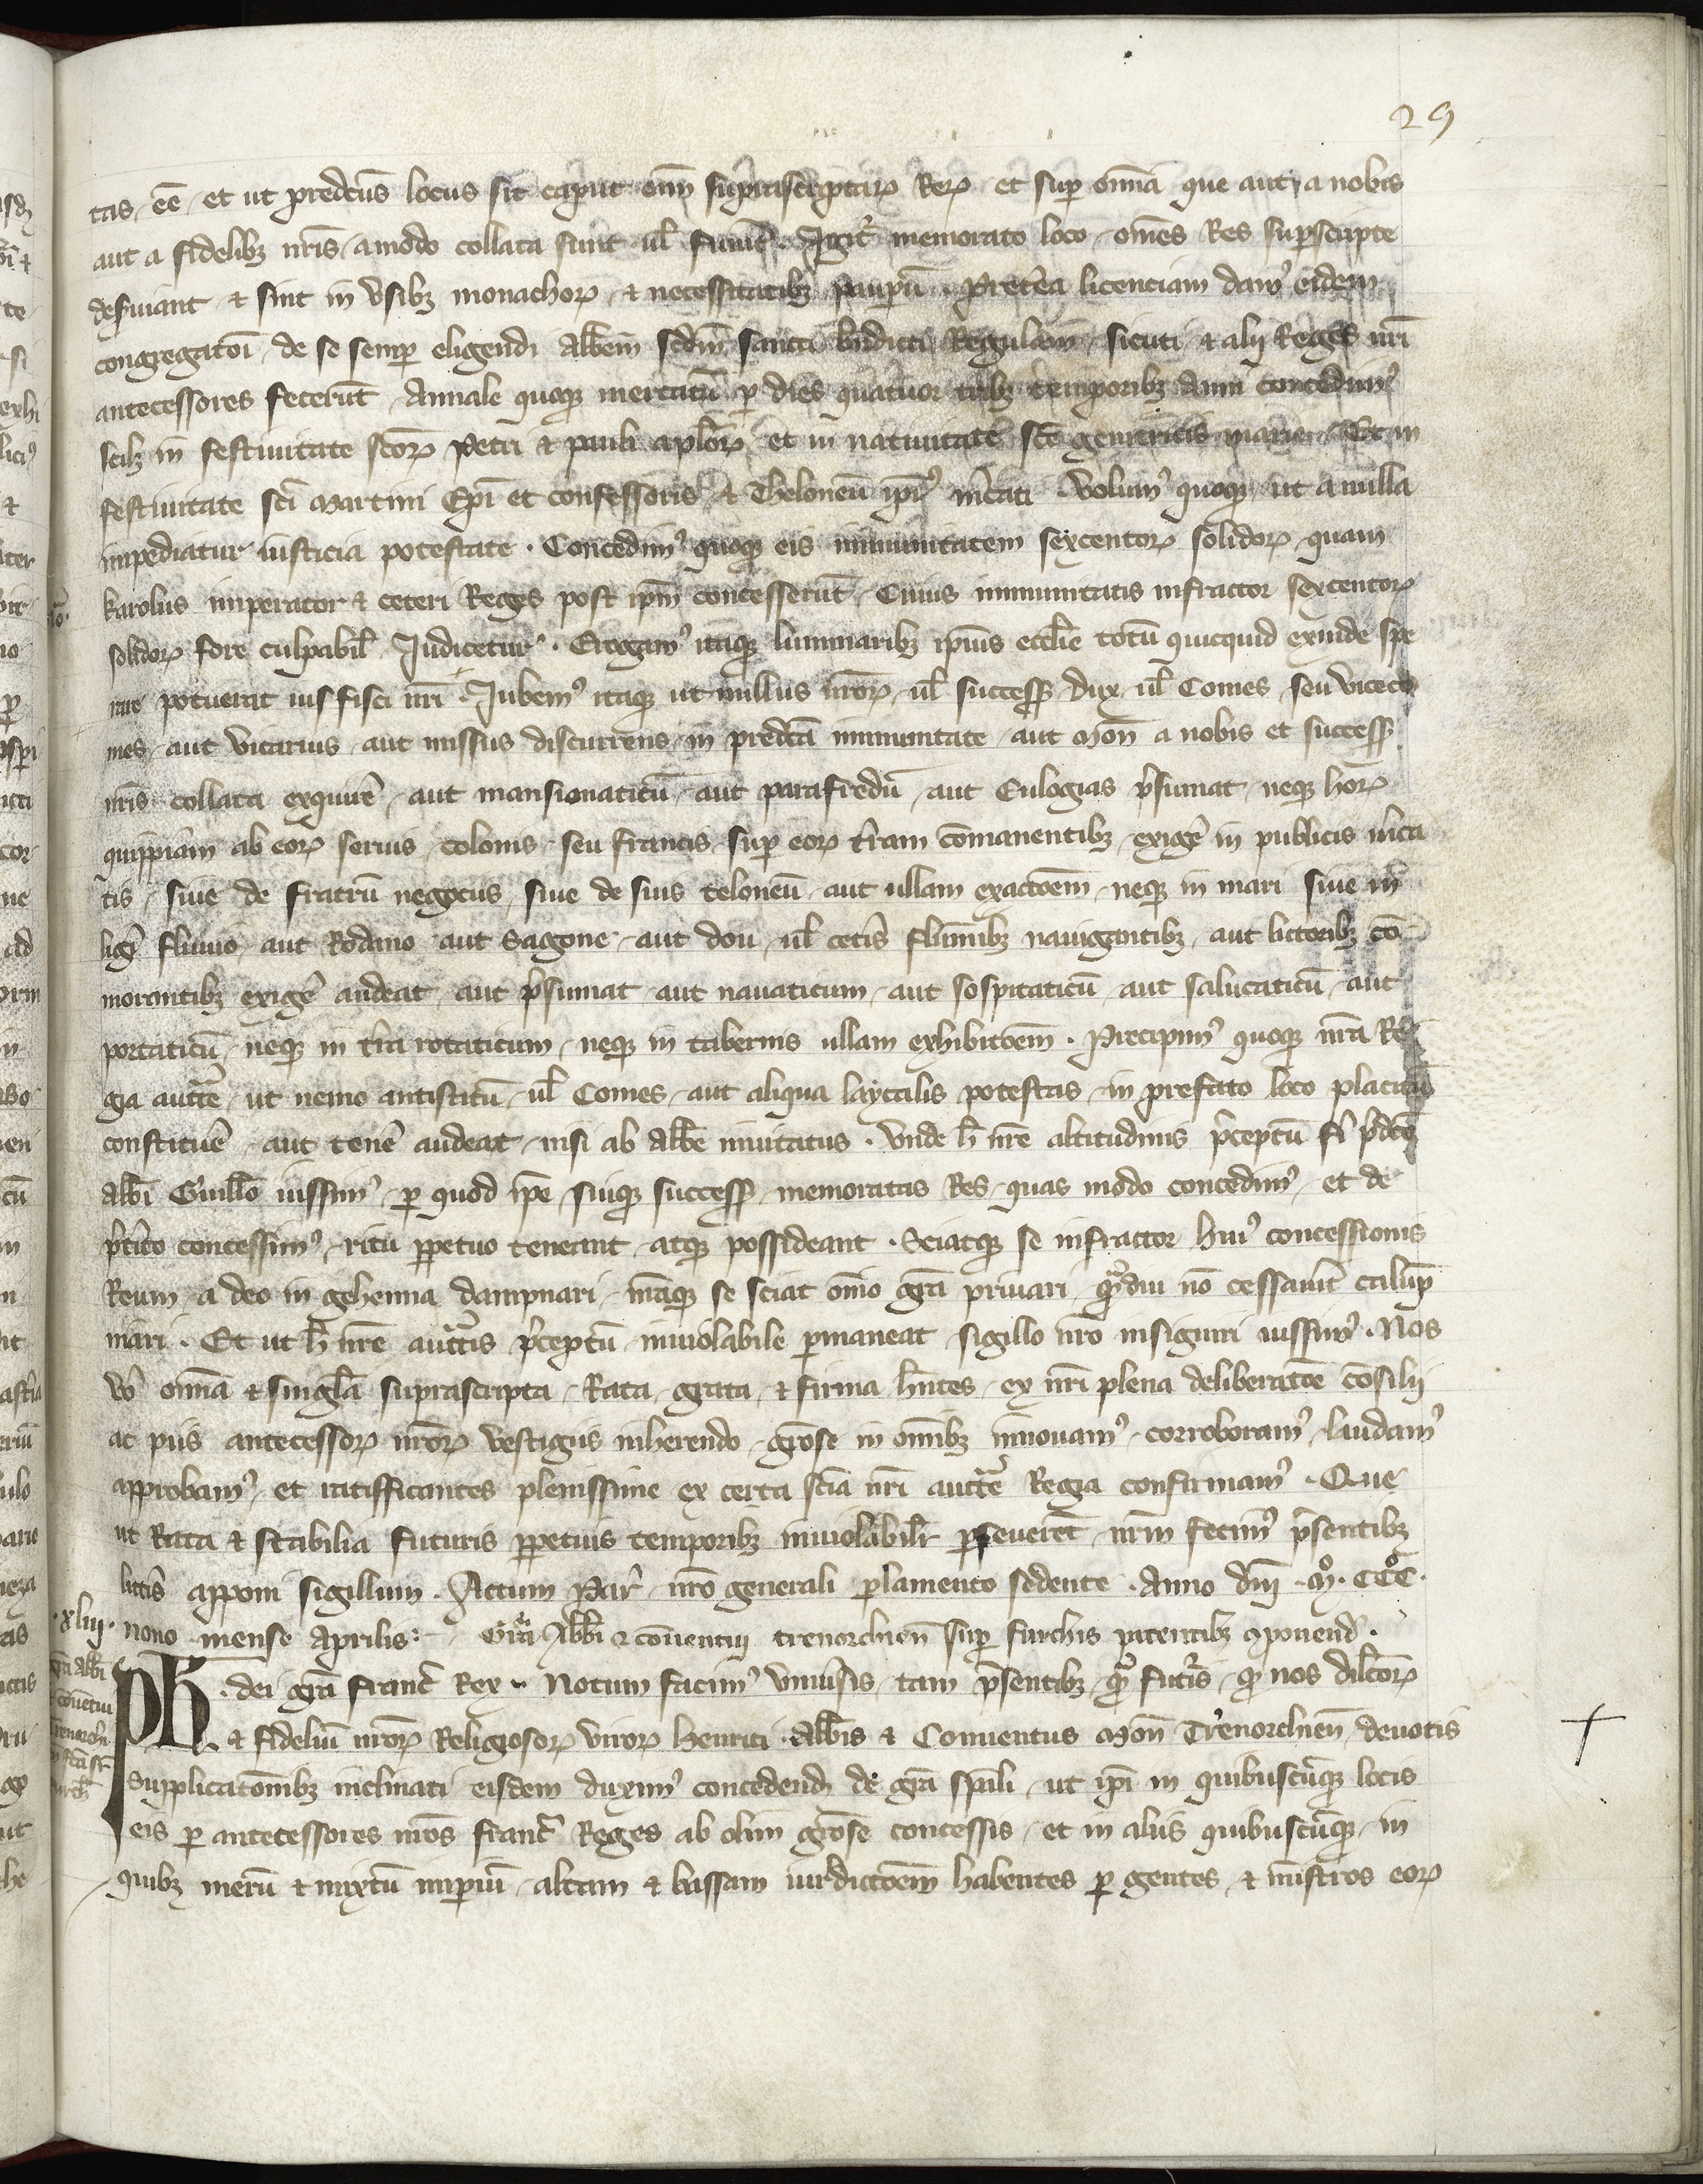 29
tas eē et ut predcūs locus sit caput om̄ suprascriptaꝝ Reꝝ et suꝑ om̄ia que aut a nobis
aut a fidelibꝫ nr̄is amodo collata sunt ul̄ fuerit̄. Igit᷑ memorato loco omēs Res suprascripte
deẜuiant et sint in vsibꝫ monachoꝝ et necessitatibꝫ paupeꝝ. Pret̄ea licenciam damꝰ eidem
congregatoī de se semꝑ eligendi Abb̄em scdm̄ sancti bn̄dicti Regulam sicuti et alij Reges nr̄i
antecessores fecerūt. Annale quoqꝫ mercatū ꝑ dies quatuor tribꝫ temporibꝫ anni concedimꝰ
scilꝫ in festiuitate sc̄oꝝ Petri et pauli apl̄oꝝ et in natiuitate sc̄e genitricis marie Et in
festiuitate sc̄i Martini Ep̄i et confessoris et Theloneū ip̄iꝰ m̄cati. Volumꝰ quoqꝫ ut a nulla
impediatur iusticia potestate. Concedimꝰ quoqꝫ eis immunitatem sexcentoꝝ solidoꝝ quam
karolus imperator et ceteri Reges post ip̄m concesserūt. Cuius immunitatis infractor sexcentoꝝ
solidoꝝ fore culpabil̄ Iudicetur. Erogamꝰ itaqꝫ luminaribꝫ ipiuˢ eccl̄ie totū quicquid exinde spe
rare potuerat ius fisci nr̄i. Iubemꝰ itaqꝫ ut nullus nr̄oꝝ ul̄ successoꝝ dux ul̄ Comes seu viceco
mes aut vicarius aut missus discurrens in predc̄a immunitate aut Mon̄ a nobis et success̄
nr̄is collata exquirē aut mansionaticū aut parafredū aut Eulogias p̄sumat neqꝫ hoꝝ
quippiam ab eoꝝ seruis colonis seu francis suꝑ eoꝝ t̄ram cōmanentibꝫ exigē in publicis m̄ca
tis siue de fratrū negociis siue de suis teloneū aut ullam exactoēm neqꝫ in mari siue in
lige᷑ fluuio aut Rodano aut Sagone aut dou ul̄ cet̄is flūinibꝫ nauigantibꝫ aut lictoribꝫ cō
morantibꝫ exigē audeat aut p̄sumat aut nauaticum aut sospitaticū aut salutaticū aut
portaticū neqꝫ in t̄ra rotaticum neqꝫ in tabernis ullam exhibitoēm. Precipimꝰ quoqꝫ nr̄a Re
gia auctt̄e ut nemo antistitū ul̄ Comes aut aliqua laycalis potestas in prefato loco placitū
constituē aut tenē audeat nisi ab Abb̄e inuitatus. Vnde h̄ nr̄e altitudinis p̄ceptū fi᷑ p̄dc̄o
Abb̄i Guill̄o iussimꝰ ꝑ quod ip̄e suiqꝫ success̄ memoratas Res quas modo concedimꝰ et de
p̄tito concessimꝰ ritu ꝑpetuo teneant atqꝫ possideant. Sciatqꝫ se infractor huiꝰ concessionis
Reum a deo in gehenna dampnari nr̄aqꝫ se sciat om̄io gr̄a priuari qᷓdiu nō cessauit̄ calūp
niari. Et ut h̄ nr̄e auctt̄is p̄ceptū inuiolabile ꝑmaneat sigillo nr̄o insigniri iussimꝰ. Nos
vō om̄ia et singl̄a suprascripta Rata grata et firma hn̄tes ex nr̄i plena deliberatoē cōsilij
ac piis antecessoꝝ nr̄oꝝ vestigiis inherendo grōse in om̄ibꝫ innouamꝰ corroboramꝰ laudamꝰ
approbamꝰ et ratifficantes plenissime ex certa sc̄ia nr̄i auctt̄e Regia confirmamꝰ. Que
ut Rata et stabilia futuris ꝑpetuis temporibꝫ inuiolabilr̄ ꝑseuerēt nr̄m fecimꝰ p̄sentibꝫ
litt̄is apponi sigillum. Actum Par᷑ nr̄o generali ꝑlamento sedente. Anno dn̄i .Mº. CCCº.
nono mense aprilis. Grā Abb̄i et cōuentui trenorchien̄ suꝑ furchis patentibꝫ ꝯponend̄.
.xliij.
grā abb̄i
cōuetui
trenorchn̄
PH. dei gr̄a franc᷑ Rex. Notum facimꝰ vniu̇sis tam p̄sentibꝫ qᷓ futur᷑is qꝫ nos dil̄coꝝ
et fideliū nr̄oꝝ Religiosoꝝ viroꝝ henrici Abb̄is et Conuentus Mon̄ Trenorchien̄ deuotis
Supplicatoībꝫ inclinati eisdem duximꝰ concedend̄ de gr̄a spāli ut ip̄i in quibuscūqꝫ locis
eis ꝑ antecessores nr̄os franc᷑ Reges ab olim grōse concessis et in aliis quibuscūqꝫ in
quibꝫ merū et mixtū imperiū altam et bassam iurdictoēm habentes ꝑ gentes et mīstros eoꝝ